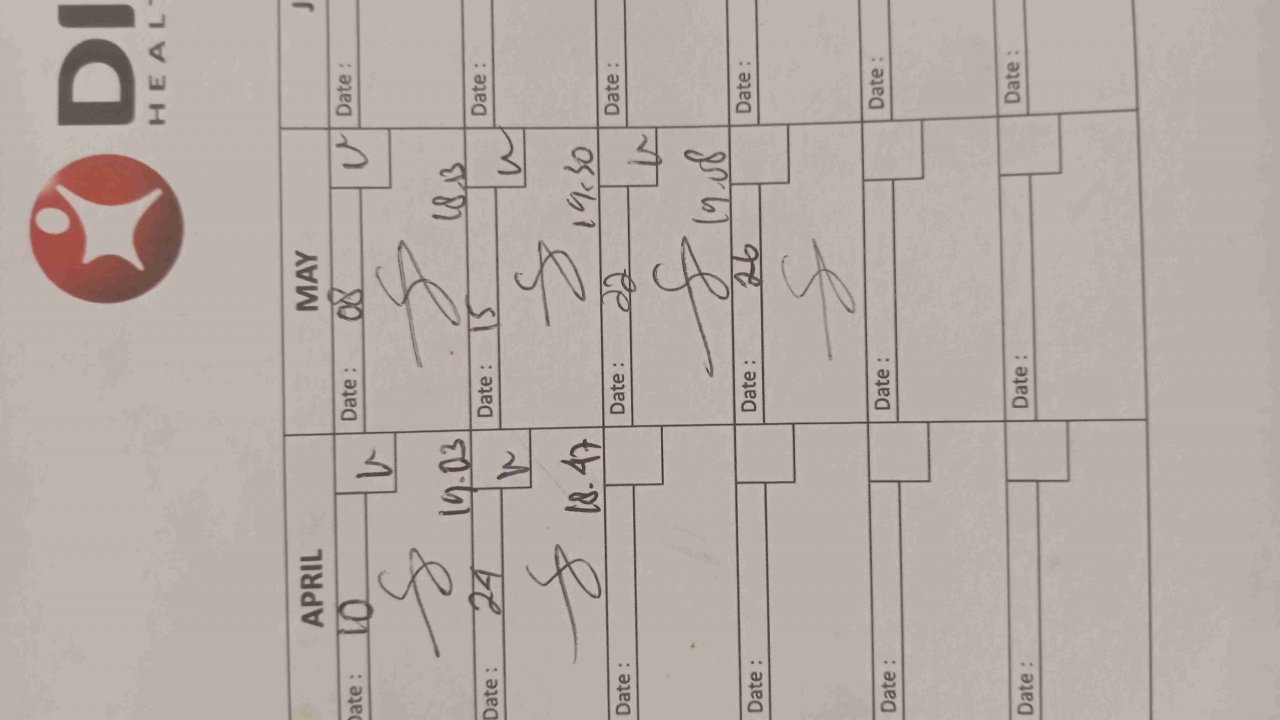 DI
HEALT
APRIL MAY J
Date : 10 V Date : 08 V Date :
19.03 18.13
Date : 24 V Date : 15 V Date :
18.47 19.30
Date : Date : 22 V Date :
19.08
Date : Date : 26 Date :
Date : Date : Date :
Date : Date : Date :